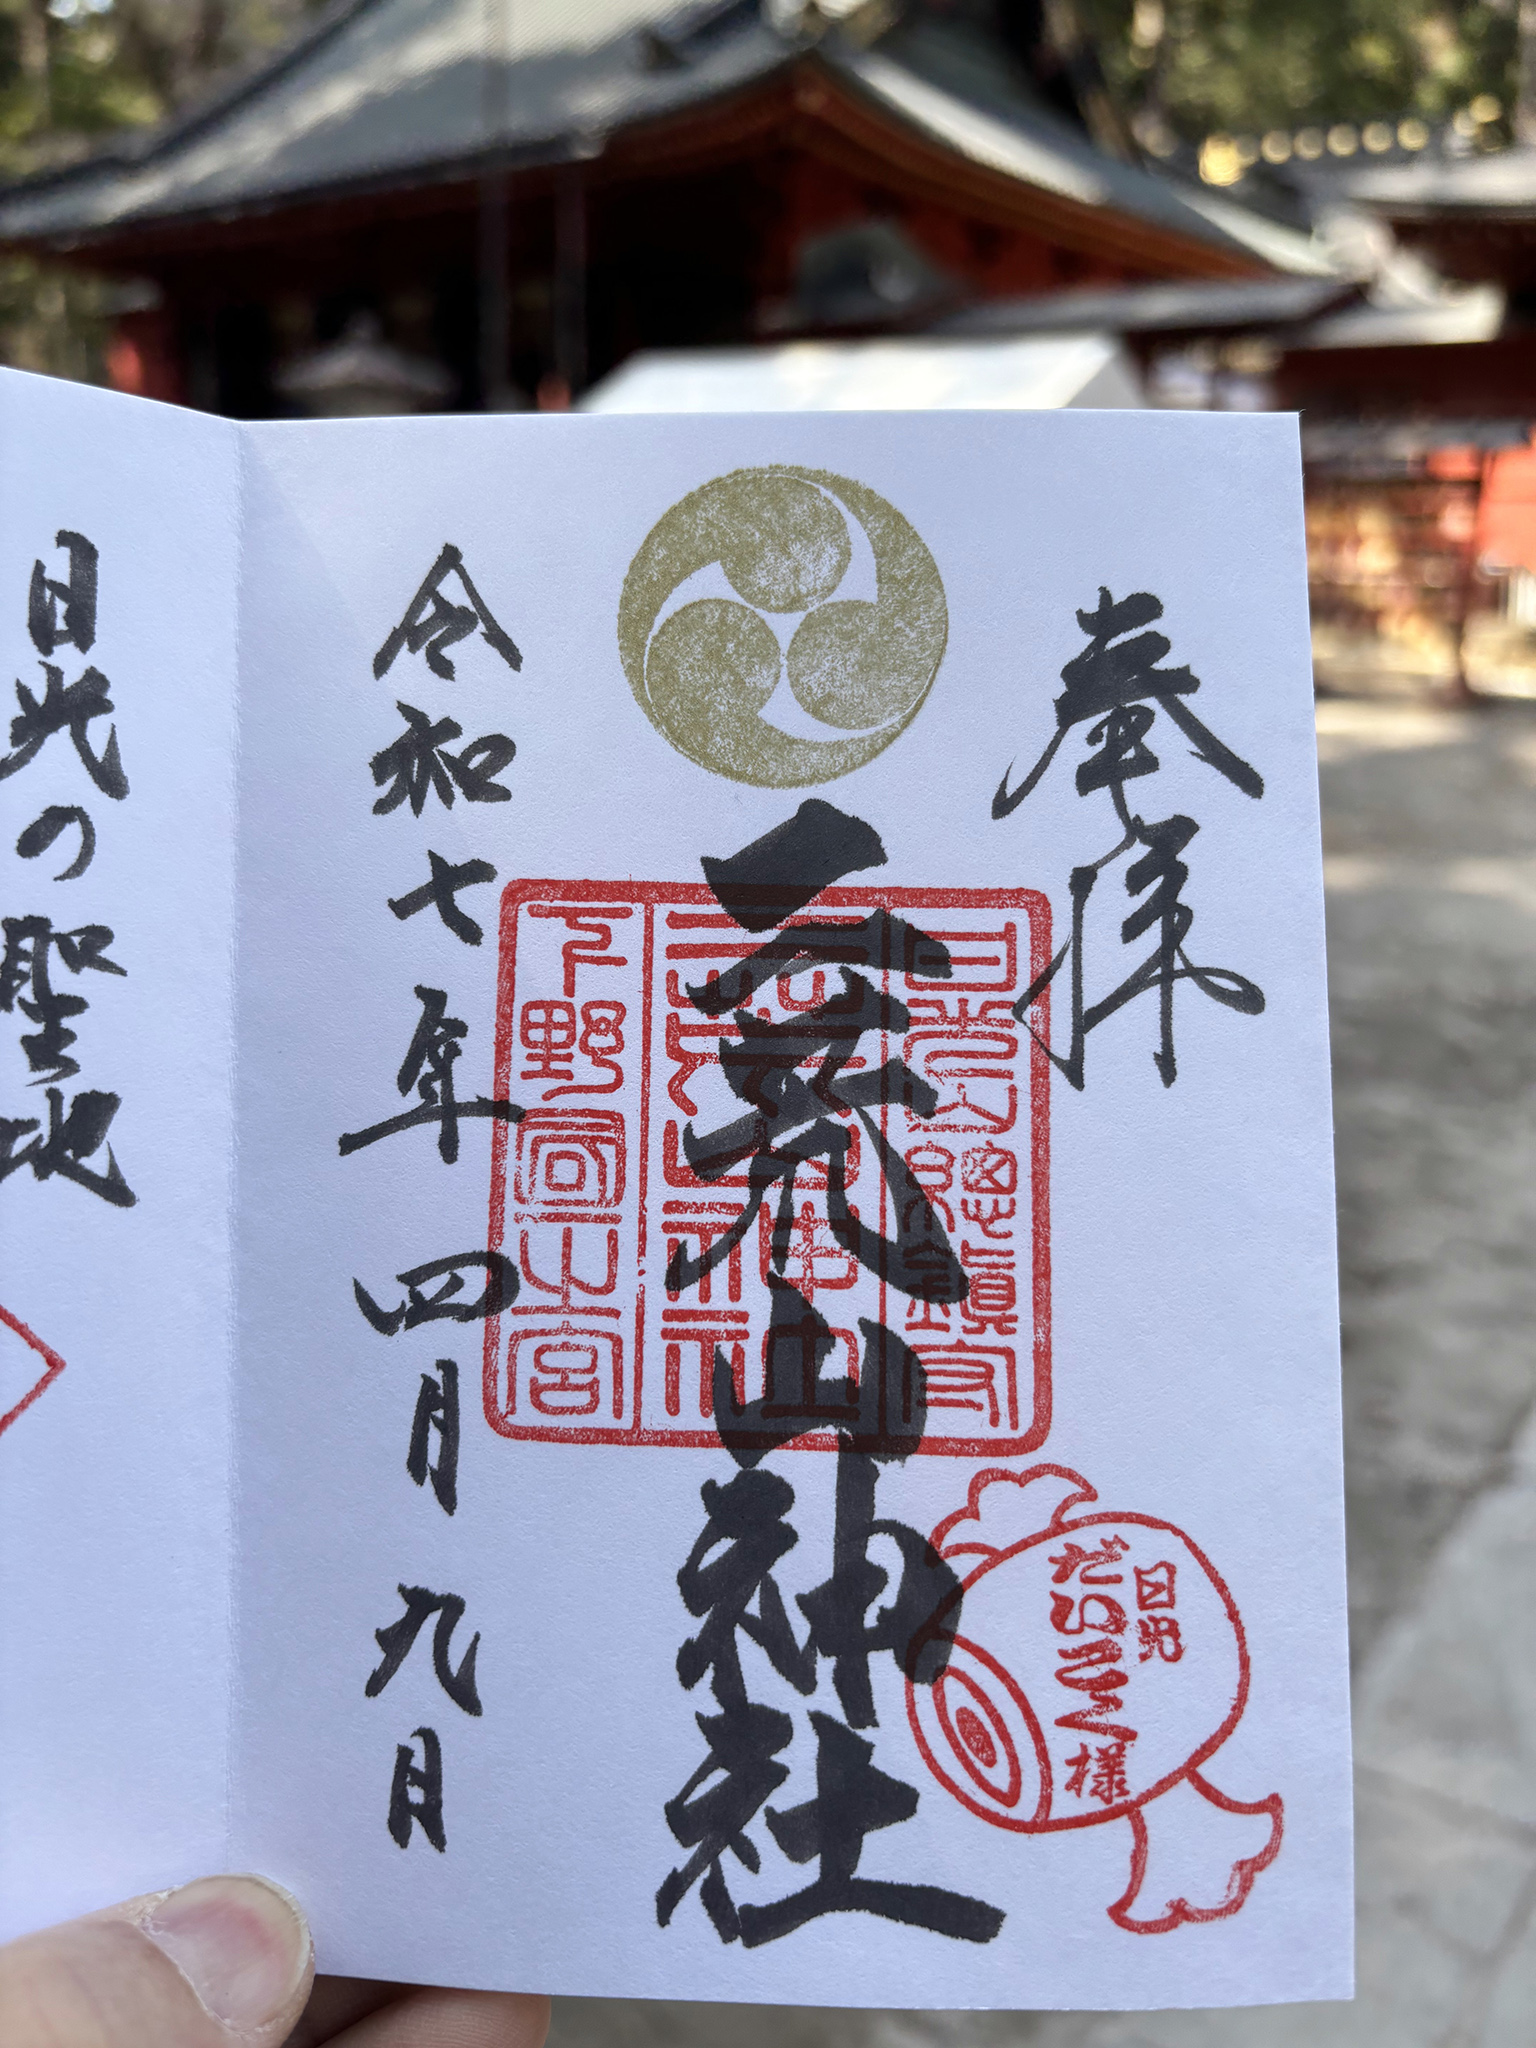 奉拝
日光山総鎮守
二荒山神社
二荒山神社
下野國一之宮
日光
だいこく様
令和七年四月九日
日光の聖地